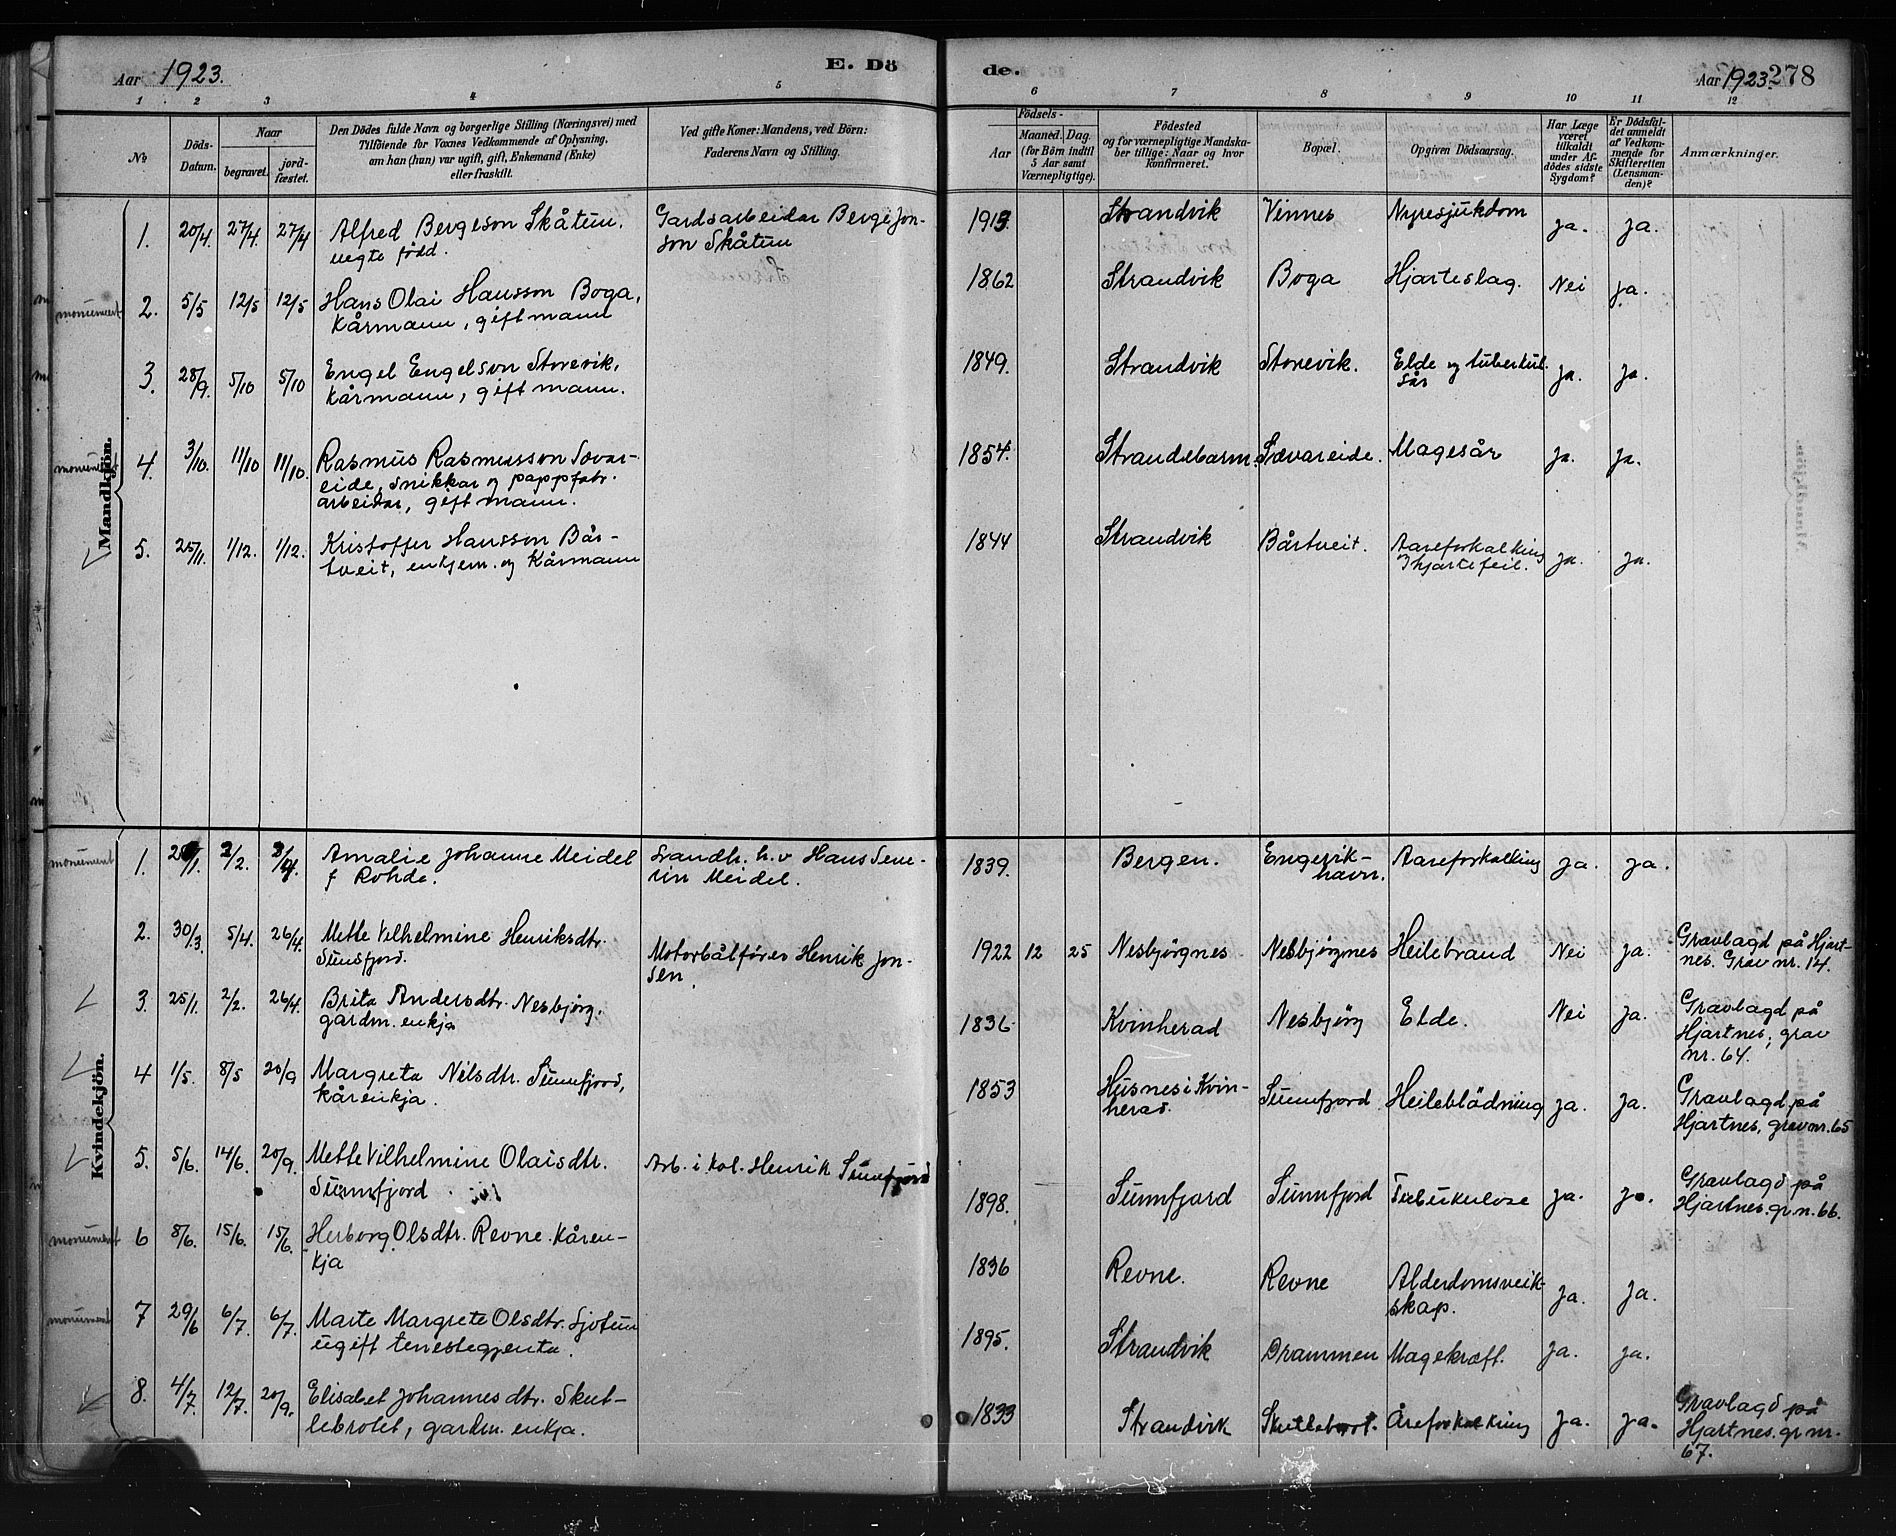 Aar 1923.
E. Dö
de.
Aar 1923.
278
1 2 3 4 5
6 7 8 9 10 11 12
No
Döds-
Datum.
Naar
begravet.
jord-
fæstet.
Den Dödes fulde Navn og borgerlige Stilling (Næringsvei) med
Tilföiende for Voxnes Vedkommende af Oplysning,
om han (hun) var ugift, gift, Enkemand (Enke)
eller fraskilt.
Ved gifte Koner: Mandens, ved Börn:
Faderens Navn og Stilling.
Födsels-
Aar
Maaned. Dag.
(for Börn indtil
5 Aar samt
Værnepligtige).
Födested
og for værnepligtige Mandska-
ber tillige: Naar og hvor
konfirmeret.
Bopæl.
Opgiven Dödsaarsag.
Har Læge
været
tilkaldt
under Af-
dödes sidste
Sygdom?
Er Dödsfal-
det anmeldt
af Vedkom-
mende for
Skifteretten
(Lensman-
den)?
Anmærkninger.
Mandkjön.
1. 20/4. 27/4. 27/4 Alfred Bergeson Skåtun, Gardsarbeidar Berge Jon- 1913 Strandvik Vinnes Nyresjukdom ja. ja.
uegte född. son Skåtun
monument 2. 5/5 12/5 12/5 Hans Olai Hansson Boga, 1862 Strandvik Boga Hjarteslag. Nei ja.
Kårmann, gift mann
3. 28/9. 5/10 5/10 Engel Engelson Storevik, 1849. Strandvik Storevik. Elde og tuberkul. ja. ja.
kårmann, gift mann. sår
monument 4. 3/10. 11/10 11/10. Rasmus Rasmusson Sævar- 1854. Strandebarm. Sævareide. Magesår ja. ja.
eide, snikkar og pappfabr.
arbeidar, gift mann.
5. 25/11. 1/12. 1/12. Kristoffer Hansson Bår- 1844 Strandvik Bårtveit. Aareforkalking ja. ja.
tveit, enkjem. og Kårmann og hjartefeil.
Kvindekjön.
monument 1. /1. /2. Amalie Johanne Meidel Srandh. h.v Hans Seve- 1839. Bergen. Engevik- Aareforkalking ja. ja.
f Rohde. rin Meidel. havn.
2. 30/3. 5/4. 26/4. Mette Vilhelmine Henriksdtr. Motorbåtförer Henrik Jon- 1922 12 25 Nesbjörgnes Nesbjörgnes Heilebrand Nei ja. Gravlagd på Hjart-
Sunfjord. sen. nes. Grav nr. 14.
3. 25/1. 2/2. 26/4. Brita Andersdtr. Nesbjörg, 1836 Kvinherad Nesbjörg Elde. Nei ja. Gravlagd på
gardm. enkja Hjartnes, grav
nr. 64.
4 1/5. 8/5 20/9 Margreta Nilsdtr. Sunnfjord, 1853 Husnes i Kvin- Sunnfjord Heileblödning ja. ja. Gravlagd på
kårenkja. herad. Hjartnes, grav nr. 65
5. 5/6. 14/6. 20/9. Mette Vilhelmine Olaisdtr. Arb. i kol. Henrik Sunnfjord 1898. Sunnfjord Sunnfjord Tuberkulose ja. ja. Gravlagd på
Sunnfjord Hjartnes. gr. n. 66.
monument 6 8/6. 15/6. 15/6. Herborg Olsdtr. Revne. Kåren- 1836 Revne. Revne Alderdomsveik- ja. ja.
kja skap.
monument 7 29/6 6/7. 6/7. Marte Margrete Olsdtr. Sjotun 1895. Strandvik Drammen Magekræft. ja. ja.
ugift tenestegjenta.
8. 4/7. 12/7. 20/9. Elisabet Johannesdtr. Skut- 1833 Strandvik Skutlebrot. Åreforkalking ja. ja. Gravlagd på
lebrotet, gardm. enkja. Hjartnes. gr nr.
67.